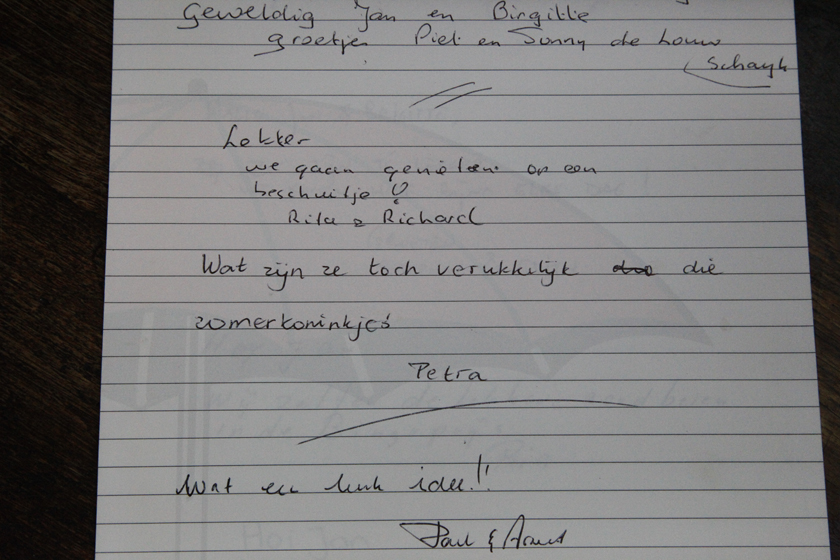 Geweldig Jan en Birgitte
groetjes Piet en Sonny de Louw
Schayk
Lekker
we gaan genieten op een
beschuitje
Rita & Richard
Wat zijn ze toch verukkelijk die
zomerkoninkjes
Petra
Wat een leuk idee!!
Paul &